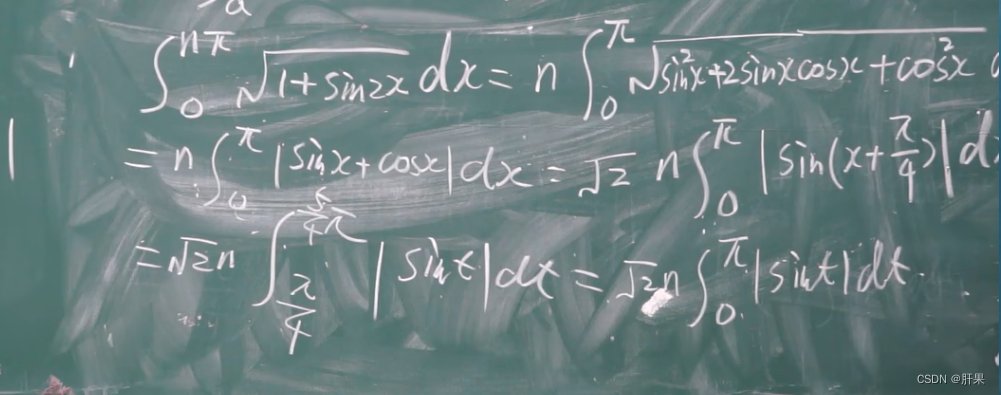 ∫₀^{nπ} √(1+sin2x) dx = n ∫₀^{π} √(sin²x+2sinxcosx+cos²x)
= n ∫₀^{π} |sinx+cosx| dx = √2 n ∫₀^{π} |sin(x+π/4)| d
= √2 n ∫_{π/4}^{5/4 π} |sint| dt = √2 n ∫₀^{π} |sint| dt.
CSDN @肝果